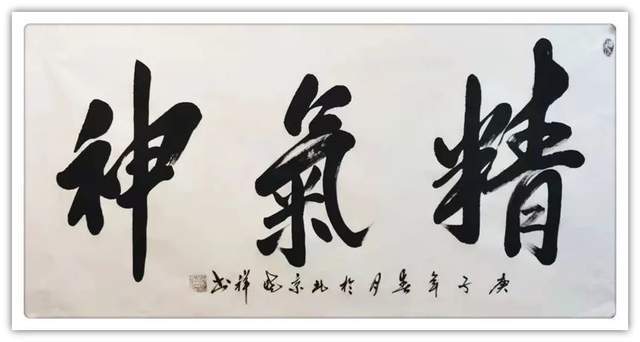 精氣神
庚子年春月於北京祥書